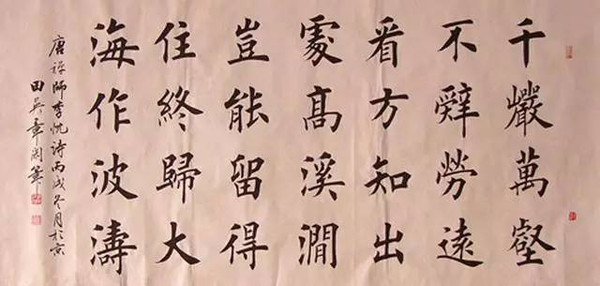 千巖萬壑
不辭勞遠
看方知出
處髙溪澗
豈能留得
住終歸大
海作波濤
唐禅師李忱詩丙戌冬月於京
田英章